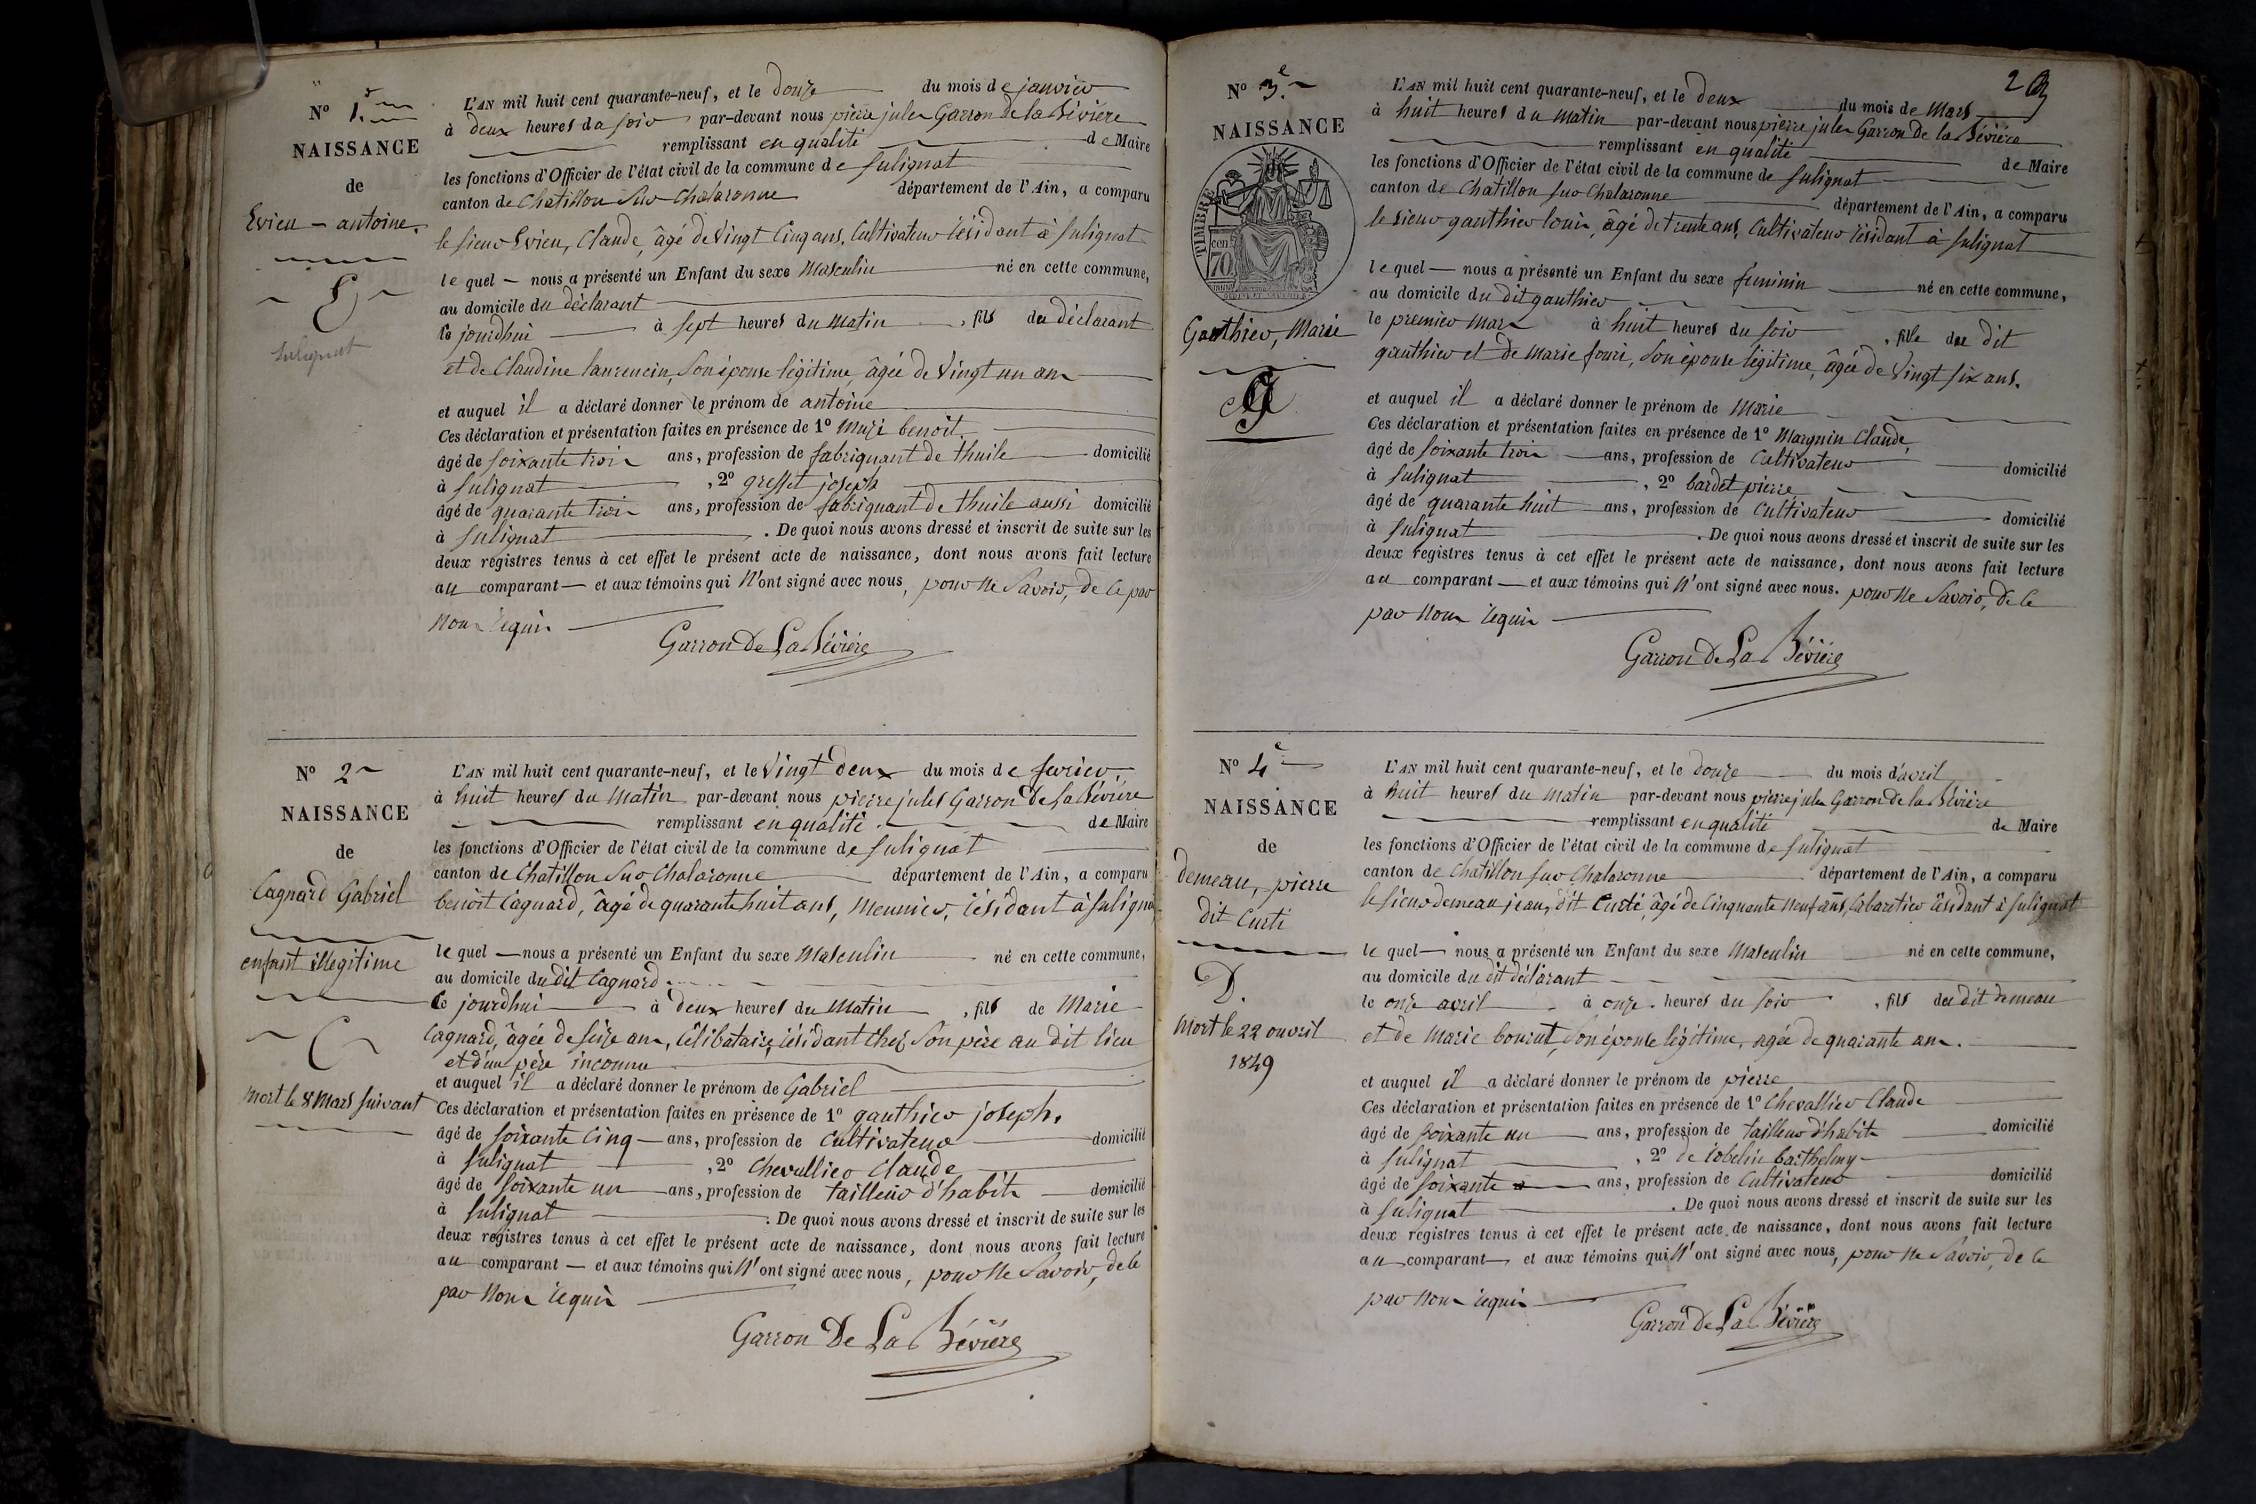 N° 1.r
NAISSANCE
de
Evieu - antoine.
E
Sulignat
L'AN mil huit cent quarante-neuf, et le douze du mois de janvier
à deux heures du soir par-devant nous pierre jules Garron de la Bévière
remplissant en qualité de Maire
les fonctions d'Officier de l'état civil de la commune de Sulignat
canton de Chatillon sur Chalaronne département de l'Ain, a comparu
le sieur Evieu, Claude, âgé de vingt cinq ans, Cultivateur résidant à Sulignat
le quel — nous a présenté un Enfant du sexe Masculin né en cette commune,
au domicile du déclarant
ce jourdhui à sept heures du Matin, fils du déclarant
et de Claudine laurencin, son épouse légitime, âgée de vingt un ans
et auquel il a déclaré donner le prénom de antoine
Ces déclaration et présentation faites en présence de 1° benoit
âgé de soixante trois ans, profession de fabriquant de thuile domicilié
à Sulignat, 2° greffet joseph
âgé de quarante trois ans, profession de fabriquant de thuile aussi domicilié
à Sulignat. De quoi nous avons dressé et inscrit de suite sur les
deux registres tenus à cet effet le présent acte de naissance, dont nous avons fait lecture
au comparant — et aux témoins qui N'ont signé avec nous, pour ne savoir, de ce par
nous requis
Garron De La Bévière
N° 2
NAISSANCE
de
Cagnard Gabriel
enfant illegitime
C
mort le 8 Mars suivant
L'AN mil huit cent quarante-neuf, et le vingt deux du mois de fevrier
à huit heures du Matin par-devant nous pierre jules Garron de la Bévière
remplissant en qualité de Maire
les fonctions d'Officier de l'état civil de la commune de Sulignat
canton de Chatillon sur Chalaronne département de l'Ain, a comparu
benoit Cagnard, âgé de quarante huit ans, Meunier, résidant à Sulignat
le quel — nous a présenté un Enfant du sexe Masculin né en cette commune,
au domicile du dit Cagnard
ce jourdhui à deux heures du Matin, fils de Marie
Cagnard, âgée de seize ans, célibataire, résidant chez son père au dit lieu
et d'un père inconnu
et auquel il a déclaré donner le prénom de Gabriel
Ces déclaration et présentation faites en présence de 1° gauthier joseph,
âgé de soixante cinq — ans, profession de cultivateur domicilié
à Sulignat, 2° Chevallier Claude
âgé de soixante un ans, profession de tailleur d'habits domicilié
à Sulignat. De quoi nous avons dressé et inscrit de suite sur les
deux registres tenus à cet effet le présent acte de naissance, dont nous avons fait lecture
au comparant — et aux témoins qui N'ont signé avec nous, pour ne savoir, de ce
par nous requis
Garron De La Bévière
N° 3.e
NAISSANCE
TIMBRE
cen 70
Gauthier, Marie
G
L'AN mil huit cent quarante-neuf, et le deux du mois de Mars
à huit heures du matin par-devant nous pierre jules Garron de la Bévière
remplissant en qualité de Maire
les fonctions d'Officier de l'état civil de la commune de Sulignat
canton de Chatillon sur Chalaronne département de l'Ain, a comparu
le sieur gauthier louis, âgé de trente ans, Cultivateur résidant à Sulignat
le quel — nous a présenté un Enfant du sexe feminin né en cette commune,
au domicile du dit gauthier
le premier Mars à huit heures du soir, fille du dit
gauthier et de Marie, son épouse légitime, âgée de vingt six ans.
et auquel il a déclaré donner le prénom de Marie
Ces déclaration et présentation faites en présence de 1° Margnin Claude,
âgé de soixante trois ans, profession de Cultivateur domicilié
à Sulignat, 2° bardet pierre
âgé de quarante huit ans, profession de Cultivateur domicilié
à Sulignat. De quoi nous avons dressé et inscrit de suite sur les
deux registres tenus à cet effet le présent acte de naissance, dont nous avons fait lecture
au comparant — et aux témoins qui N'ont signé avec nous. pour ne savoir, de ce
par nous requis
Garron De La Bévière
N° 4.e
NAISSANCE
de
demeau, pierre
dit Curti
D.
Mort le 22 avril
1849
L'AN mil huit cent quarante-neuf, et le douze du mois d'avril
à huit heures du matin par-devant nous pierre jules Garron de la Bévière
remplissant en qualité de Maire
les fonctions d'Officier de l'état civil de la commune de Sulignat
canton de Chatillon sur Chalaronne département de l'Ain, a comparu
le sieur demeau jean, dit Curté, âgé de Cinquante neuf ans, Cabaretier résidant à Sulignat
le quel — nous a présenté un Enfant du sexe Masculin né en cette commune,
au domicile du dit déclarant
le onze avril à onze heures du soir, fils du dit demeau
et de Marie bourut, son épouse légitime, agée de quarante ans.
et auquel il a déclaré donner le prénom de pierre
Ces déclaration et présentation faites en présence de 1° Chevallier Claude
âgé de soixante un ans, profession de tailleur d'habits domicilié
à Sulignat, 2° de robelin barthelmy
âgé de soixante ans, profession de Cultivateur domicilié
à Sulignat. De quoi nous avons dressé et inscrit de suite sur les
deux registres tenus à cet effet le présent acte de naissance, dont nous avons fait lecture
au comparant — et aux témoins qui N'ont signé avec nous, pour ne savoir, de ce
par nous requis
Garron De La Bévière